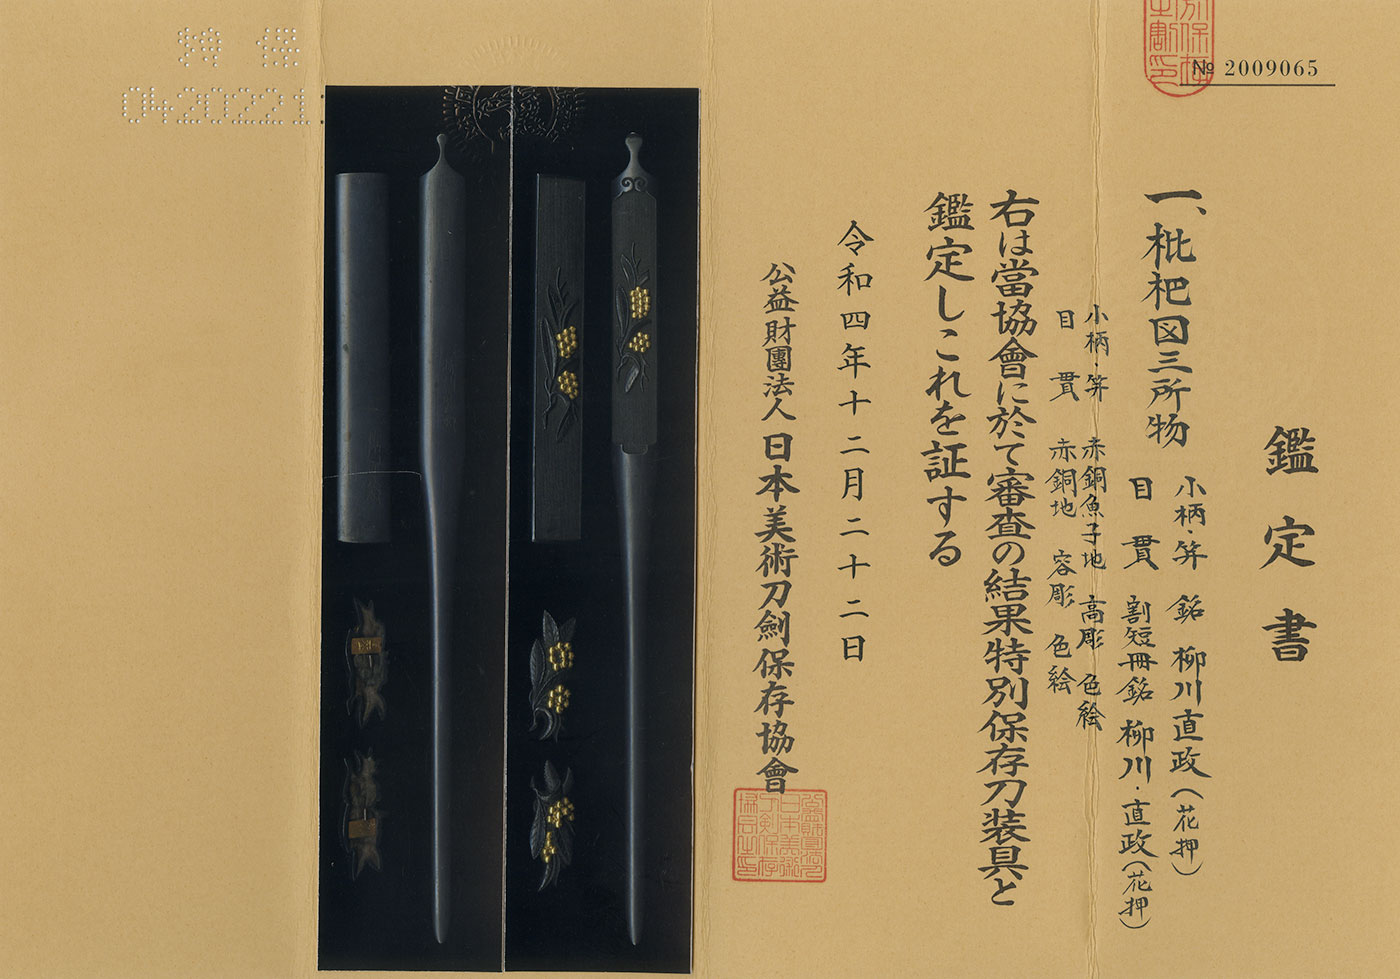 № 2009065
鑑定書
一、枇杷図三所物
小柄・笄 銘 柳川直政(花押)
目貫 割短冊銘 柳川・直政(花押)
小柄・笄 赤銅魚子地 高彫 色絵
目貫 赤銅地 容彫 色絵
右は當協會に於て審査の結果特別保存刀装具と
鑑定しこれを証する
令和四年十二月二十二日
公益財團法人 日本美術刀劍保存協會
特保
0420221